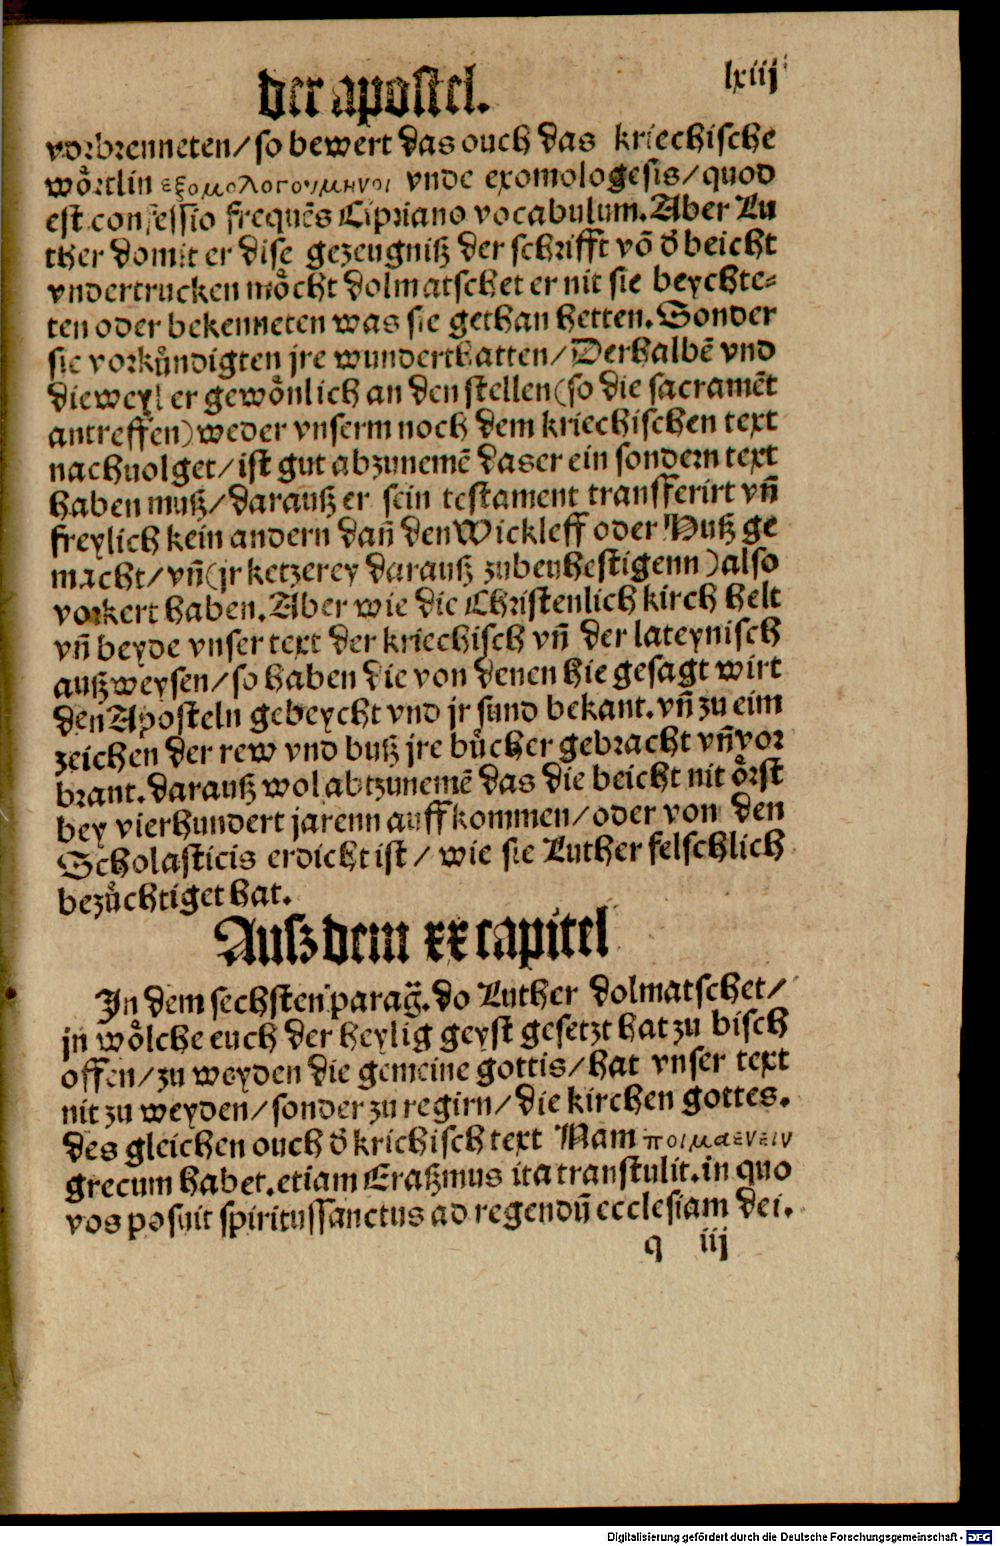 der apostel.
lxiij
vorbrenneten/so bewert das ouch das kriechische
wörtlin εξομολογουμενοι vnde exomologesis/quod
est confessio frequēs Cipriano vocabulum.Aber Lu
ther domit er dise gezeugniß der schrifft vō d̄ beicht
vndertrucken möcht dolmatschet er nit sie beychte⸗
ten oder bekenneten was sie gethan hetten.Sonder
sie vorkündigten jre wunderthatten/Derhalbē vnd
dieweyl er gewönlich an den stellen(so die sacramēt
antreffen)weder vnserm noch dem kriechischen text
nachuolget/ist gut abzunemē das er ein sondern text
haben muß/darauß er sein testament transferirt vn̄
freylich kein andern dan̄ den Wickleff oder Huß ge
macht/vn̄(jr ketzerey darauß zubeuhestigenn)also
vorkert haben.Aber wie die Christenlich kirch helt
vn̄ beyde vnser text der kriechisch vn̄ der lateynisch
außweysen/so haben die von denen hie gesagt wirt
den Aposteln gebeycht vnd jr sund bekant.vn̄ zu eim
zeichen der rew vnd buß jre bücher gebracht vn̄ vor
brant.darauß wol abtzunemē das die beicht nit örst
bey vierhundert jarenn auffkommen/oder von den
Scholasticis erdicht ist/wie sie Luther felschlich
bezüchtiget hat.
Ausz dem xx capitel
In dem sechsten paraḡ.do Luther dolmatschet/
jn wölche euch der heylig geyst gesetzt hat zu bisch
offen/zu weyden die gemeine gottis/hat vnser text
nit zu weyden/sonder zu regirn/die kirchen gottes.
des gleichen ouch d̄ krichisch text Nam ποιμαενειν
grecum habet.etiam Eraßmus ita transtulit.in quo
vos posuit spiritussanctus ad regendū ecclesiam dei.
q iij
Digitalisierung gefördert durch die Deutsche Forschungsgemeinschaft - DFG